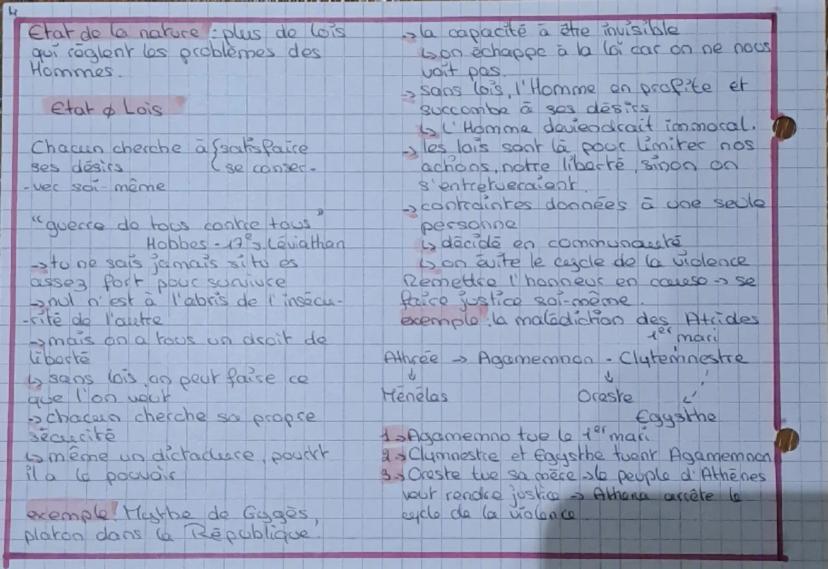 Etat de la nature : plus de lois
qui règlent les problèmes des
Hommes.
Etat ϕ Lois
Chacun cherche à { satisfaire
ses désirs { se conser-
-vec soi-même
"guerre de tous contre tous"
Hobbes - 17e s, Léviathan
→ tu ne sais jamais si tu es
assez fort pour survivre
→ nul n'est à l'abris de l'insécu-
-rité de l'autre
→ mais on a tous un droit de
liberté
↳ sans lois, on peut faire ce
que l'on veut
→ chacun cherche sa propre
sécurité
↳ même un dictateure, pourtt
il a le pouvoir
exemple : Mythe de Gygès,
platon dans la République.
→ la capacité à être invisible
↳ on échappe à la loi car on ne nous
voit pas.
→ sans lois, l'Homme en profite et
succombe à ses désirs
↳ l'Homme deviendrait immoral.
→ les lois sont là pour limiter nos
actions, notre liberté, sinon on
s'entretueraient.
→ contraintes données à une seule
personne
↳ décidé en communauté
↳ on évite le cycle de la violence
Remettre l'honneur en cause → se
faire justice soi-même.
exemple : la malédiction des Atrides
1er mari
Athrée → Agamemnon - Clytemnestre
↓ ↓
Ménélas Oreste
Egysthe
1→ Agamemno tue le 1er mari
2→ Clymnestre et Egysthe tuent Agamemnon
3→ Oreste tue sa mère → le peuple d'Athènes
veut rendre justice → Athéna arrête le
cycle de la violence